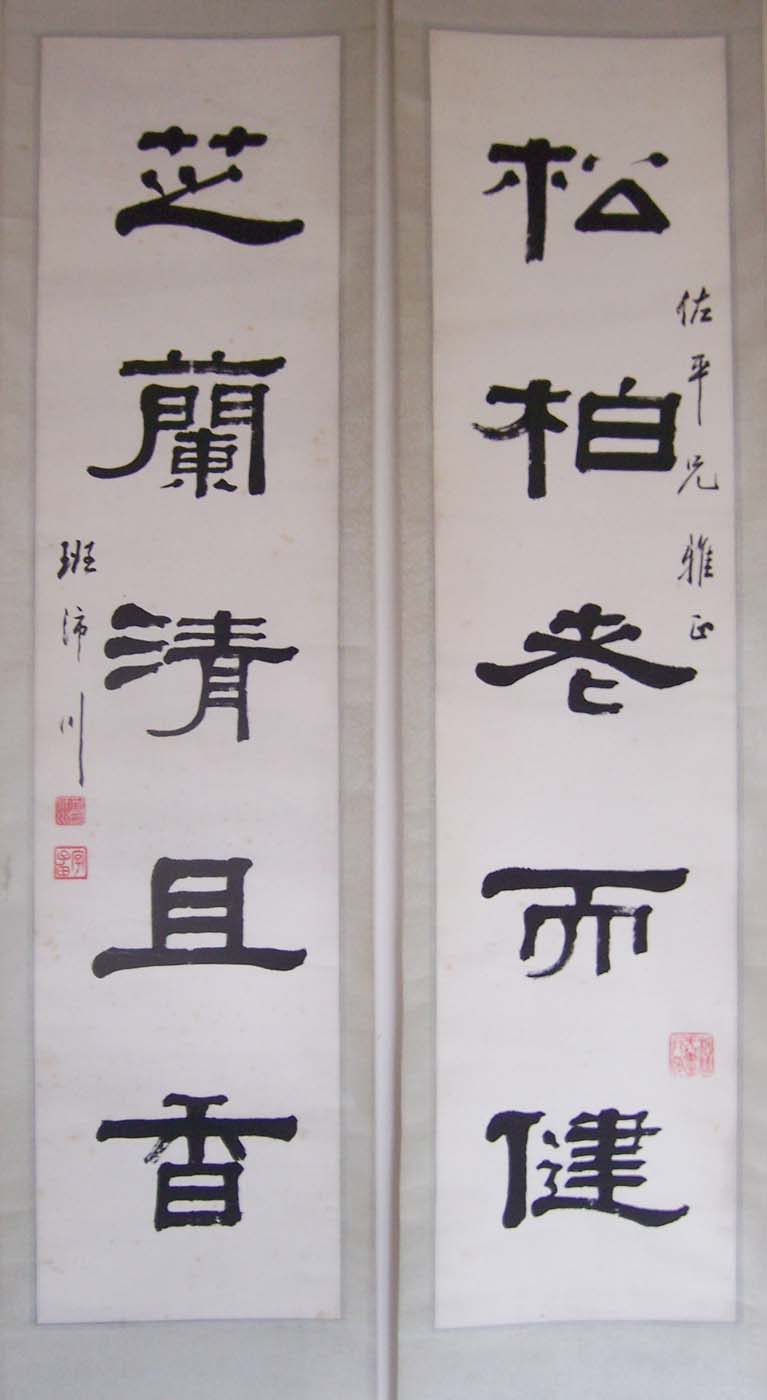 松柏老而健
佐平兄雅正
芝蘭清且香
班沛川